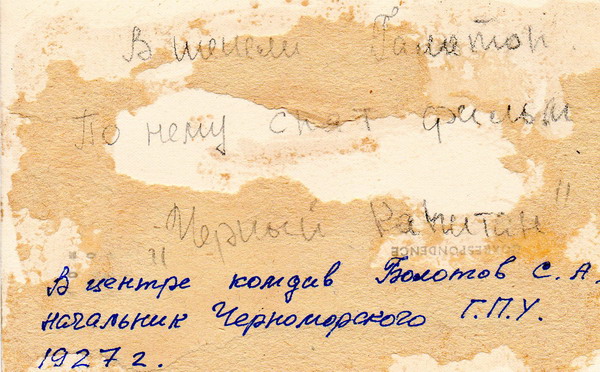 В шинели Галетов
По нему снят фильм
"Черный капитан"
CORRESPONDENCE
В центре комдив Болотов С. А.
начальник Черноморского Г.П.У.
1927 г.